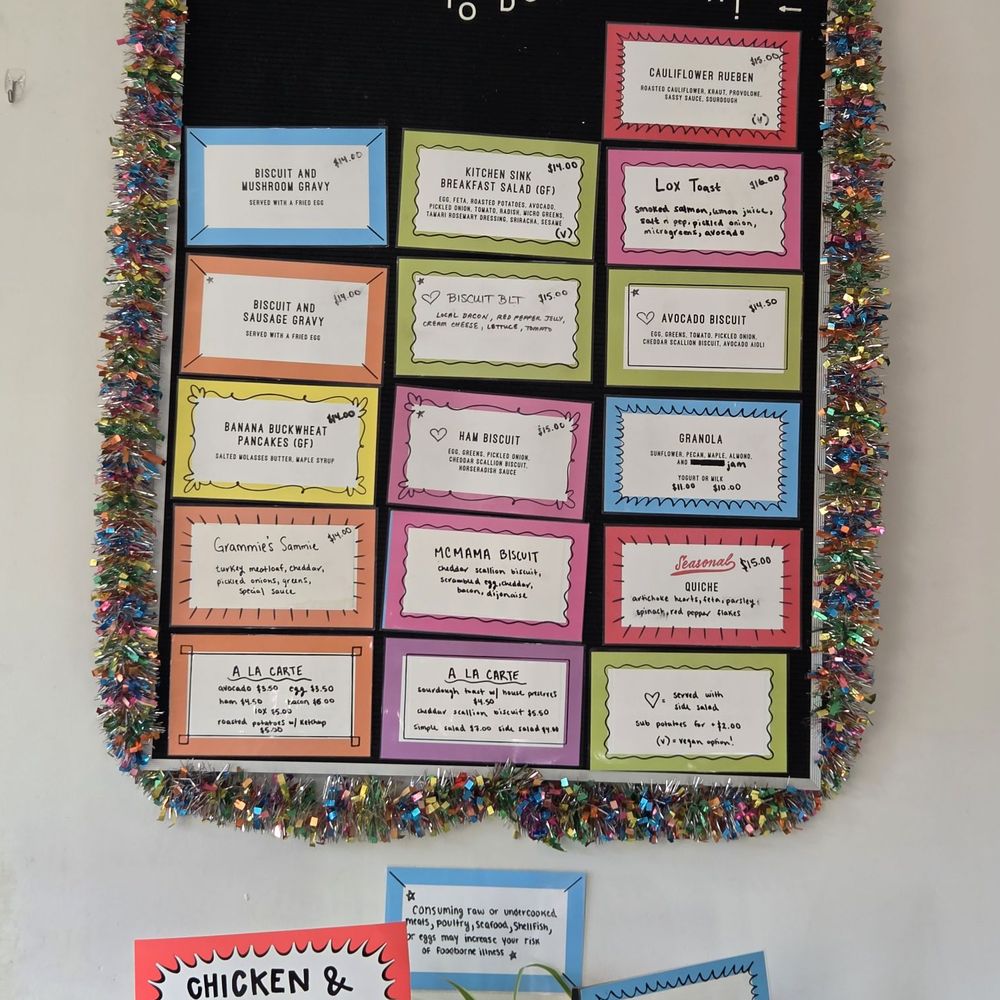 TO DO
!
←
CAULIFLOWER RUEBEN
$15.00
ROASTED CAULIFLOWER, KRAUT, PROVOLONE,
SASSY SAUCE, SOURDOUGH
(V)
BISCUIT AND
MUSHROOM GRAVY
$14.00
SERVED WITH A FRIED EGG
KITCHEN SINK
BREAKFAST SALAD (GF)
$14.00
EGG, FETA, ROASTED POTATOES, AVOCADO,
PICKLED ONION, TOMATO, RADISH, MICRO GREENS,
TAMARI ROSEMARY DRESSING, SRIRACHA, SESAME
(V)
Lox Toast $16.00
smoked salmon, lemon juice,
salt n pep, pickled onion,
microgreens, avocado
BISCUIT AND
SAUSAGE GRAVY
$14.00
SERVED WITH A FRIED EGG
♡ BISCUIT BLT $15.00
LOCAL BACON, RED PEPPER JELLY,
CREAM CHEESE, LETTUCE, TOMATO
♡ AVOCADO BISCUIT
$14.50
EGG, GREENS, TOMATO, PICKLED ONION,
CHEDDAR SCALLION BISCUIT, AVOCADO AIOLI
BANANA BUCKWHEAT
PANCAKES (GF)
$14.00
SALTED MOLASSES BUTTER, MAPLE SYRUP
♡ HAM BISCUIT
$15.00
EGG, GREENS, PICKLED ONION,
CHEDDAR SCALLION BISCUIT,
HORSERADISH SAUCE
GRANOLA
SUNFLOWER, PECAN, MAPLE, ALMOND,
AND jam
YOGURT OR MILK
$11.00 $10.00
Grammie's Sammie $14.00
turkey meatloaf, cheddar,
pickled onions, greens,
special sauce
MCMAMA BISCUIT
cheddar scallion biscuit,
scrambled egg, cheddar,
bacon, dijonaise
Seasonal $15.00
QUICHE
artichoke hearts, feta, parsley,
spinach, red pepper flakes
A LA CARTE
avocado $3.50 egg $3.50
ham $4.50 bacon $6.00
lox $5.00
roasted potatoes w/ ketchup
$5.00
A LA CARTE
sourdough toast w/ house preserves
$4.50
cheddar scallion biscuit $5.50
simple salad $7.00 side salad $4.00
♡ = served with
side salad
sub potatoes for +$2.00
(V) = vegan option!
☆ Consuming raw or undercooked
meats, poultry, seafood, shellfish,
or eggs may increase your risk
of foodborne illness ☆
CHICKEN &